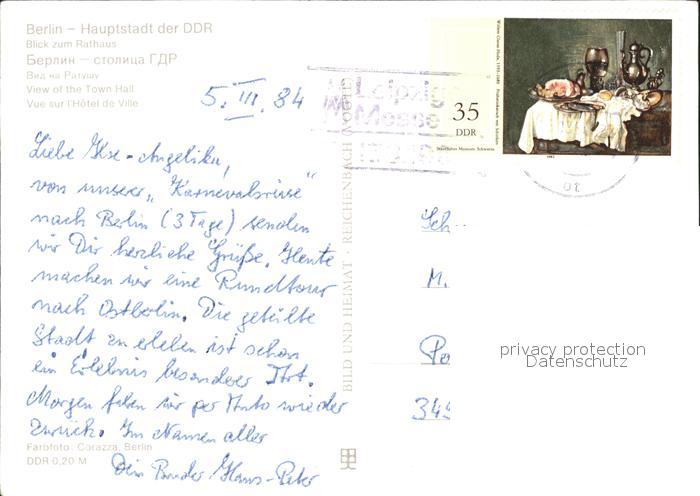 Berlin – Hauptstadt der DDR
Blick zum Rathaus
Берлин – столица ГДР
Вид на Ратушу
View of the Town Hall
Vue sur l'Hôtel de Ville
5. III. 84
Liebe Ilse-Angelika,
von unserer „Karnevalsreise"
nach Berlin (3 Tage) senden
wir Dir herzliche Grüße. Heute
machen wir eine Rundtour
nach Ostberlin. Die geteilte
Stadt zu erleben ist schon
ein Erlebnis besonderer Art.
Morgen fahren wir per Auto wieder
zurück. Im Namen aller
Dein Bruder Hans-Peter
Farbfoto: Corazza, Berlin
DDR 0,20 M
BILD UND HEIMAT · REICHENBACH (VOGTL)
35
DDR
Staatliches Museum Schwerin
M Leipzig
Messe
Sch
M.
Po
privacy protection
Datenschutz